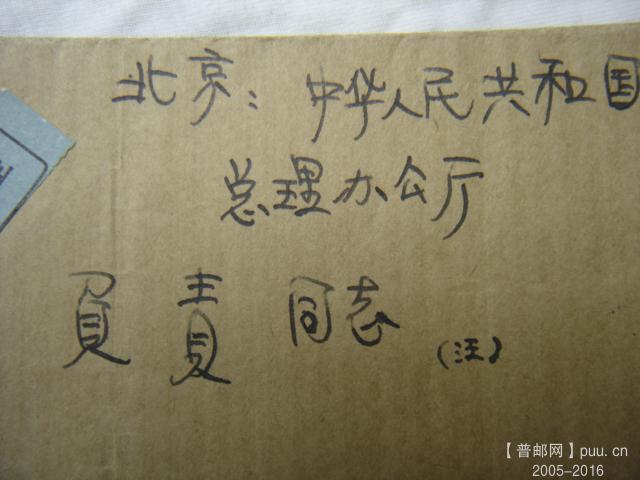 北京：中华人民共和国
总理办公厅
負責同志（汪）
【普邮网】puu.cn
2005-2016